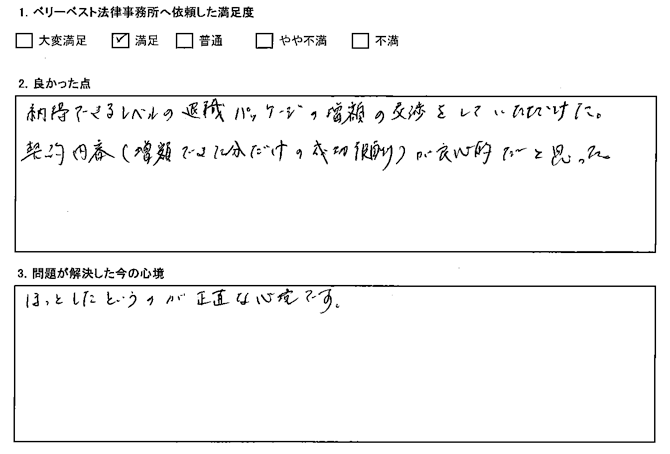 1. ベリーベスト法律事務所へ依頼した満足度
大変満足 満足 普通 やや不満 不満
2. 良かった点
納得できるレベルの退職パッケージの増額の交渉をしていただけた。
契約内容(増額できた分だけの成功報酬)が良心的だと思った。
3. 問題が解決した今の心境
ほっとしたというのが正直な心境です。